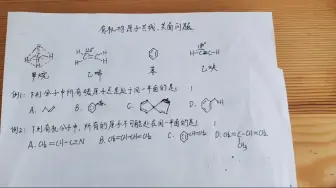 有机物原子共线、共面问题
甲烷 乙烯 苯 乙炔
例1：下列分子中所有碳原子总是处于同一平面的是（ ）
A. B. C. D.
例2：下列有机分子中，所有的原子不可能处在同一平面的是（ ）
A. CH₂=CH-C≡N B. CH₂=CH-CH=CH₂ C. D.